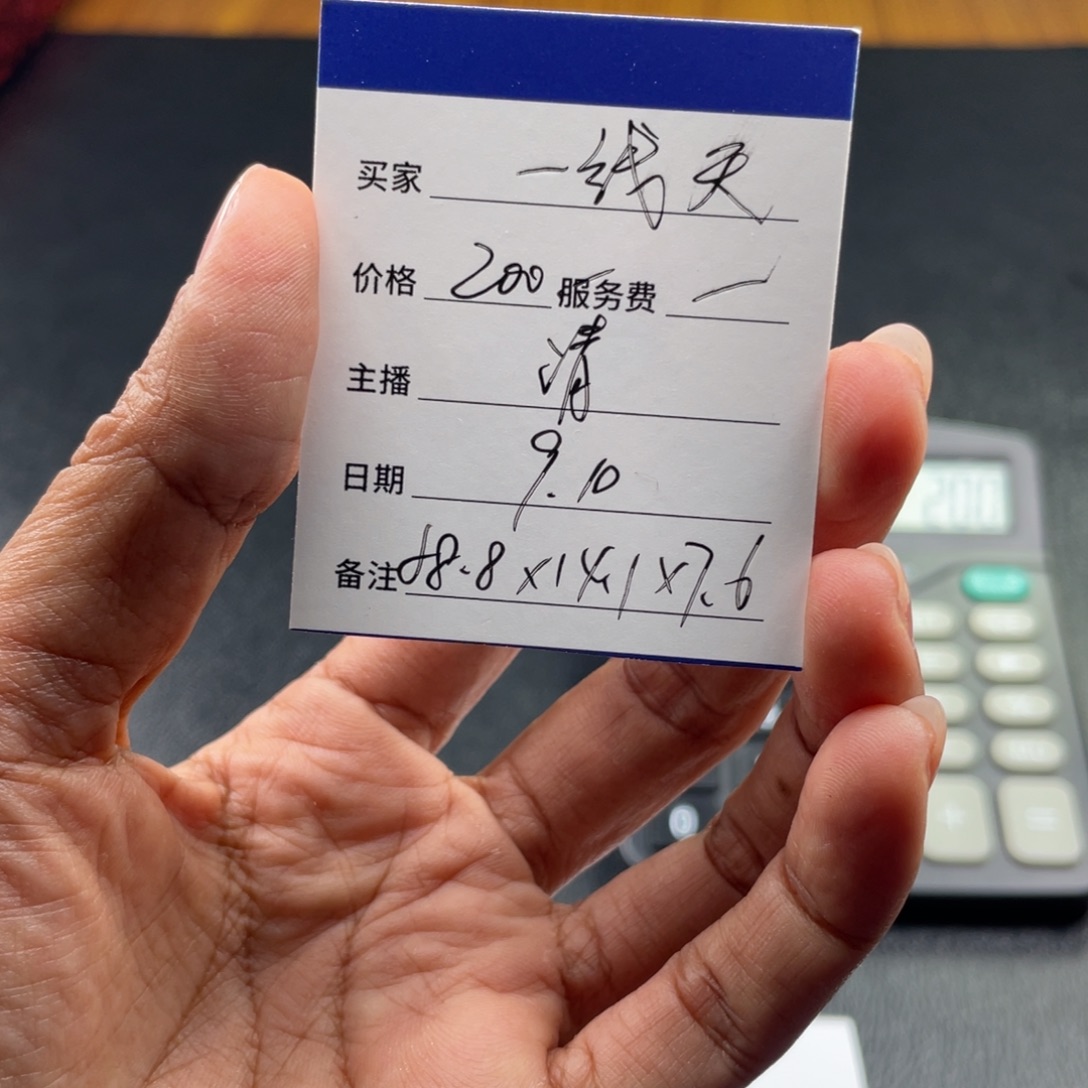 买家 一线天
价格 200 服务费 一
主播 清
日期 9.10
备注 68.8×14.1×7.6
200